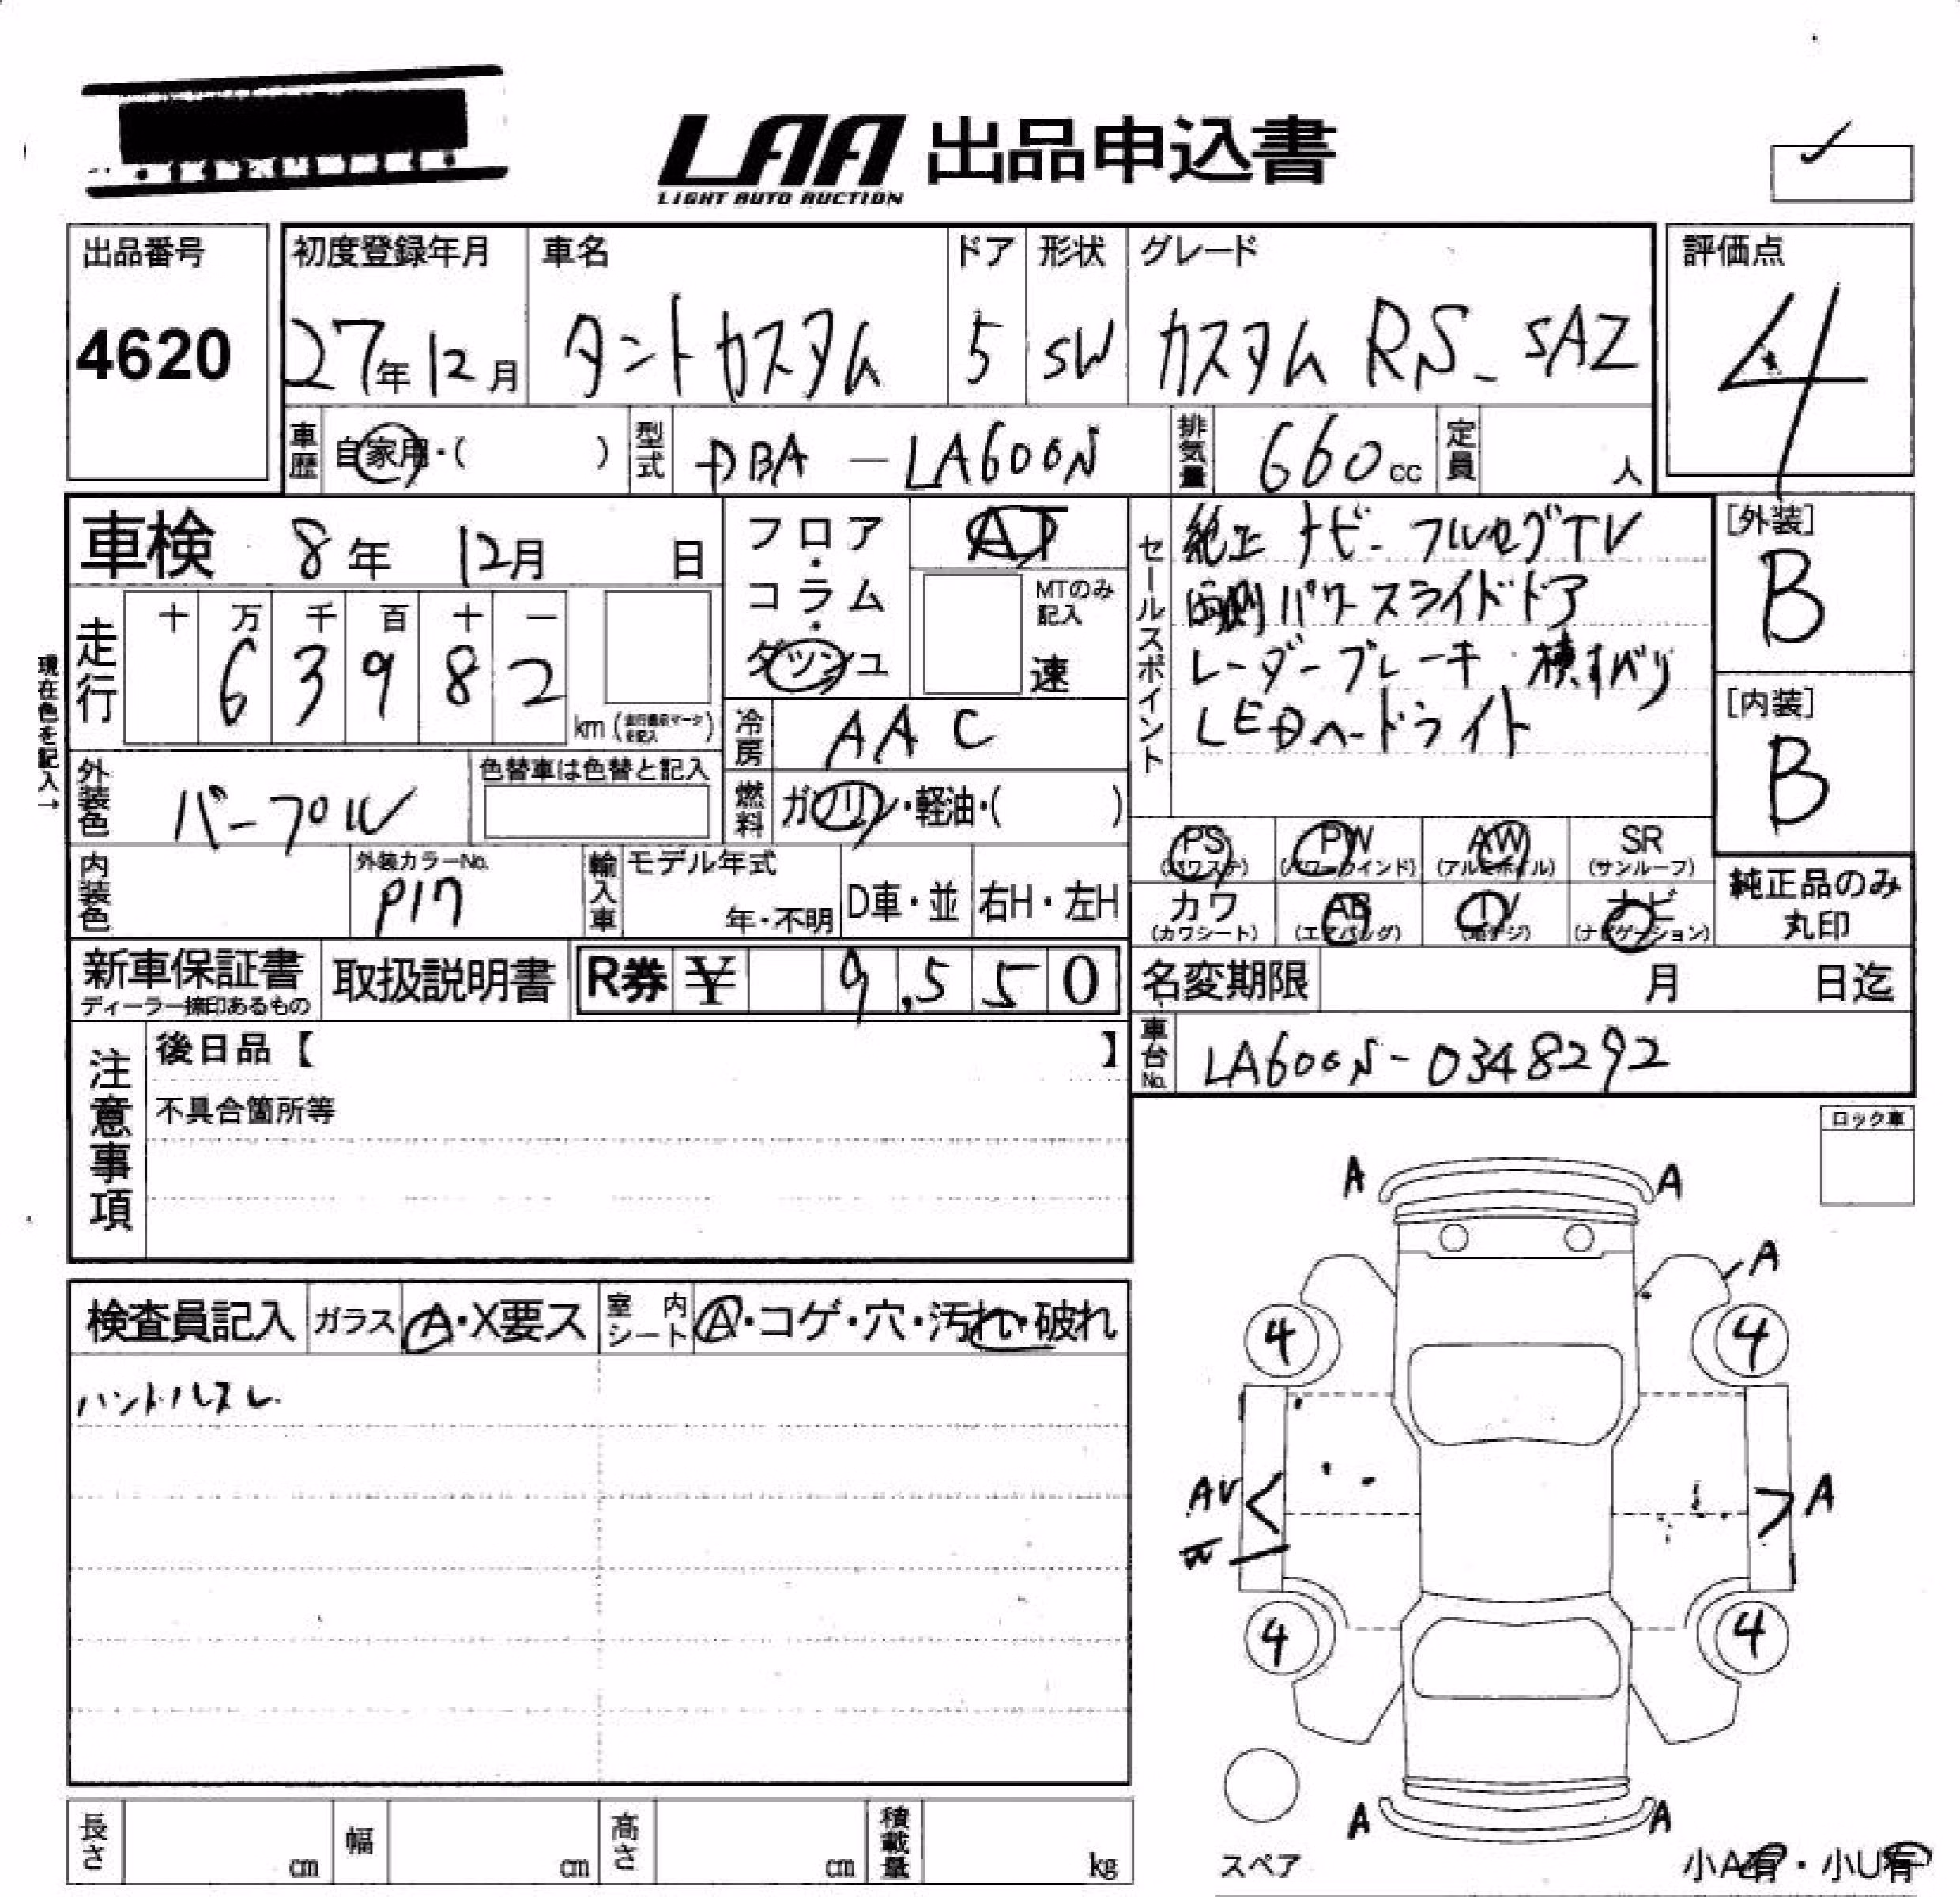 LAA 出品申込書
LIGHT AUTO AUCTION
出品番号
4620
初度登録年月 車名 ドア 形状 グレード
27年12月 タントカスタム 5 SW カスタム RS_SAZ
評価点
4
車歴 自家用・( ) 型式 DBA-LA600S 排気量 660cc 定員 人
車検 8年 12月 日
フロア・コラム・ダッシュ
AT
MTのみ記入
速
現在色を記入→
走行
十 万 千 百 十 一
6 3 9 8 2
km
冷房 AAC
外装色 パープル 色替車は色替と記入
燃料 ガソリン・軽油・( )
内装色
外装カラーNo.
P17
輸入車 モデル年式
年・不明 D車・並 右H・左H
セールスポイント
純正ナビ フルセグTV
両側パワースライドドア
レーダーブレーキ 横すべり
LEDヘッドライト
[外装]
B
[内装]
B
PS PW AW SR
(パワステ) (パワーウインド) (アルミホイル) (サンルーフ)
カワ AB TV ナビ
(カワシート) (エアバッグ) (ナビゲーション)
純正品のみ
丸印
新車保証書 取扱説明書 R券 ¥ 9,550
ディーラー捺印あるもの
名変期限 月 日迄
車台No. LA600S-0348292
注意事項
後日品【 】
不具合箇所等
ロック車
検査員記入 ガラス A・X要ス 室内シート A・コゲ・穴・汚れ・破れ
ハンドルスレ
A A
A
4 4
AU A
4 4
A A
スペア
小A有・小U有
長さ cm 幅 cm 高さ cm 積載量 kg